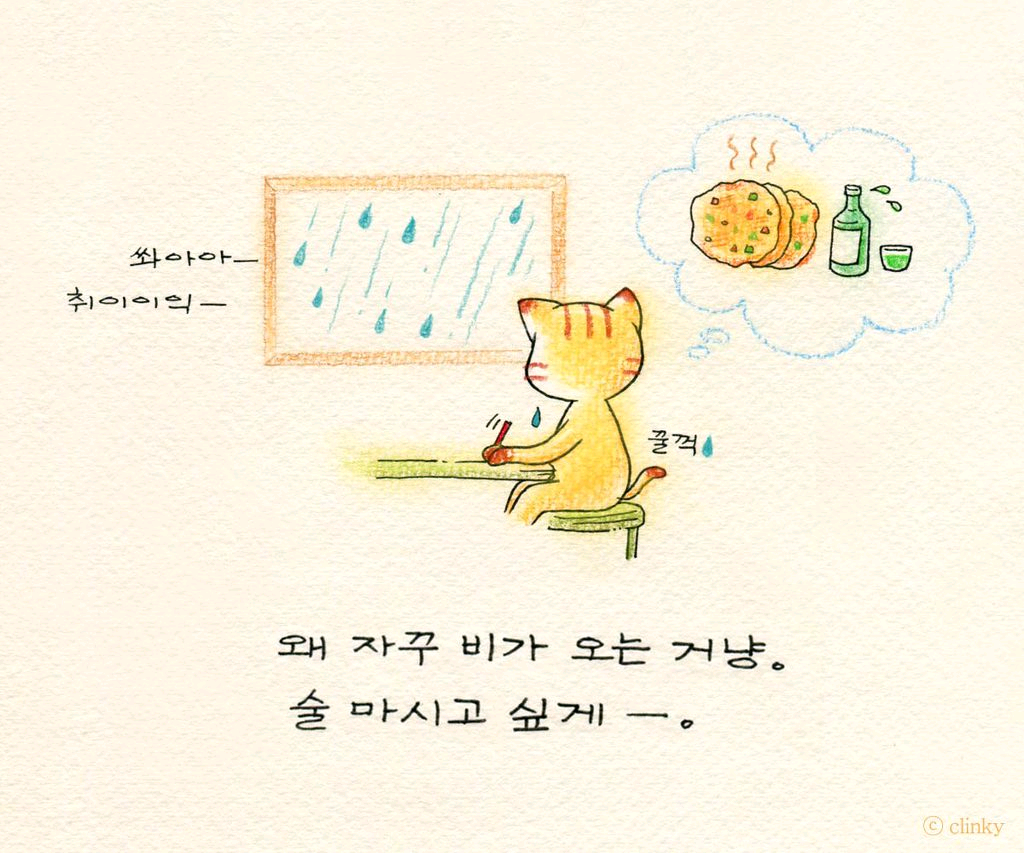 쏴아아ㅡ
취이이익ㅡ
꿀꺽
왜 자꾸 비가 오는 거냥。
술 마시고 싶게 ㅡ。
ⓒ clinky